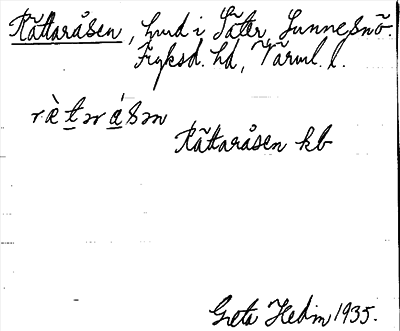 Rättaråsen, hmd i Säter, Sunnemo sn.
Fryksd. hd, Värml. l.
rὰ̀tǝráSǝn
Rättaråsen kb
Greta Hedin 1935.